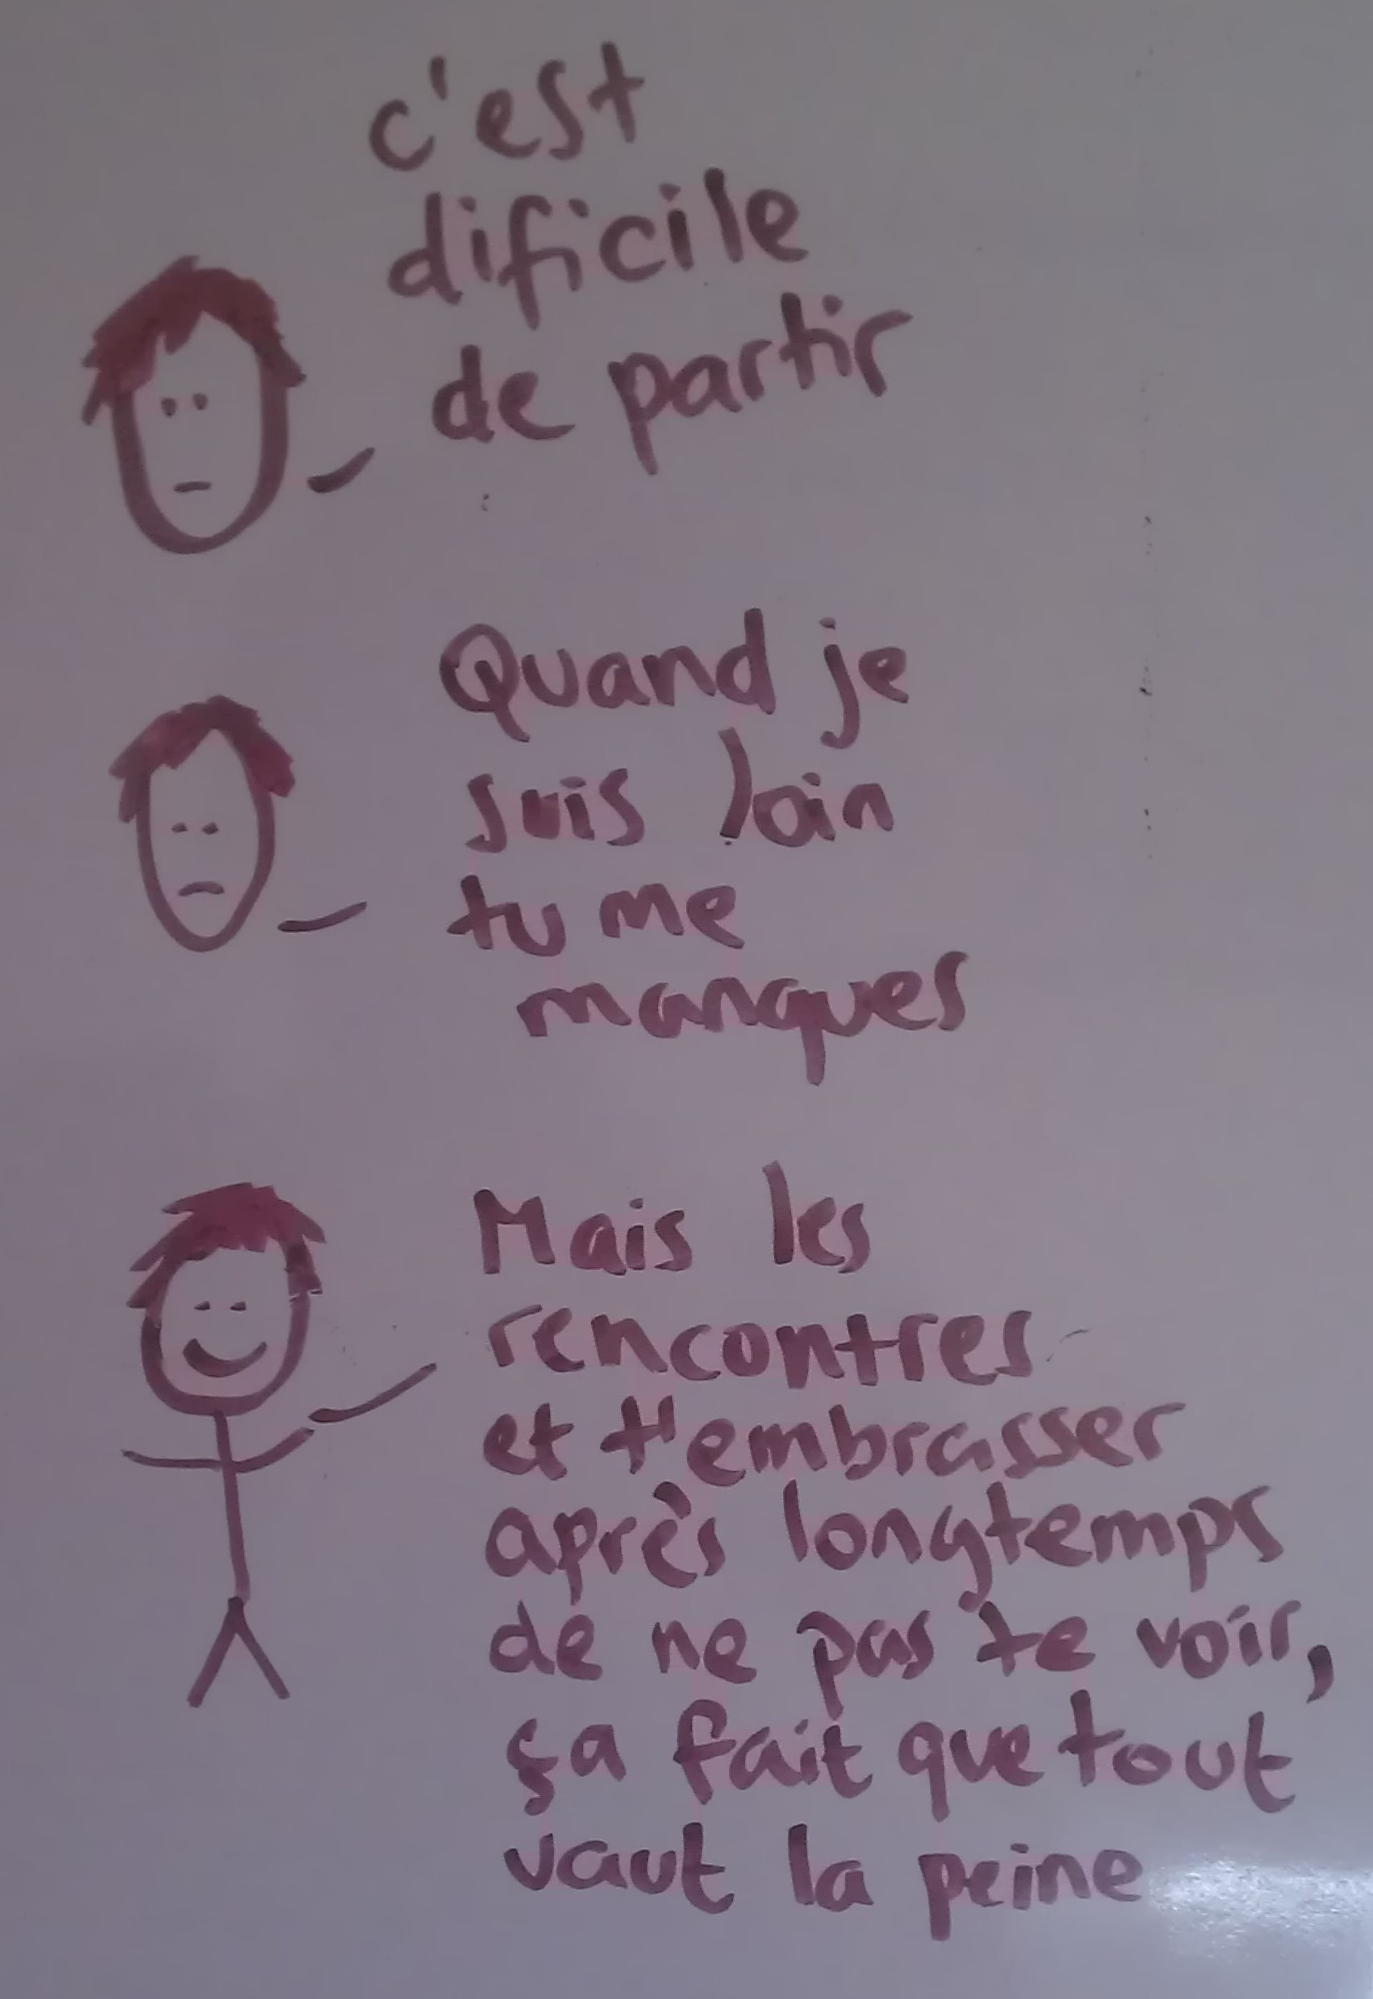 c'est
dificile
de partir
Quand je
suis loin
tu me
manques
Mais les
rencontres
et t'embrasser
après longtemps
de ne pas te voir,
ça fait que tout
vaut la peine